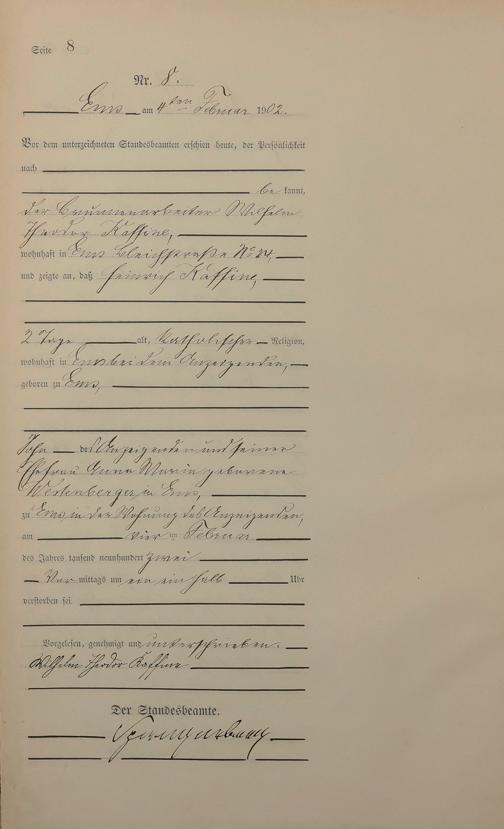 Seite 8
Nr. 8.
Ems am 4ten Februar 1902.
Vor dem unterzeichneten Standesbeamten erschien heute, der Persönlichkeit
nach
be kannt,
der Brunnenarbeiter Wilhelm
Theodor Kaffine,
wohnhaft in Ems Bleichstraße No
und zeigte an, daß Heinrich Kaffine,
2 Tage alt, katholischer Religion,
wohnhaft in Ems bei dem Anzeigenden,
geboren zu Ems,
Sohn des Anzeigenden und seiner
Ehefrau Anna Maria geborene
Westenberger in Ems,
zu Ems in der Wohnung des Anzeigenden,
am vier ten Februar
des Jahres tausend neunhundert zwei
Vor mittags um ein ein halb Uhr
verstorben sei.
Vorgelesen, genehmigt und unterschrieben.
Wilhelm Theodor Kaffine
Der Standesbeamte.